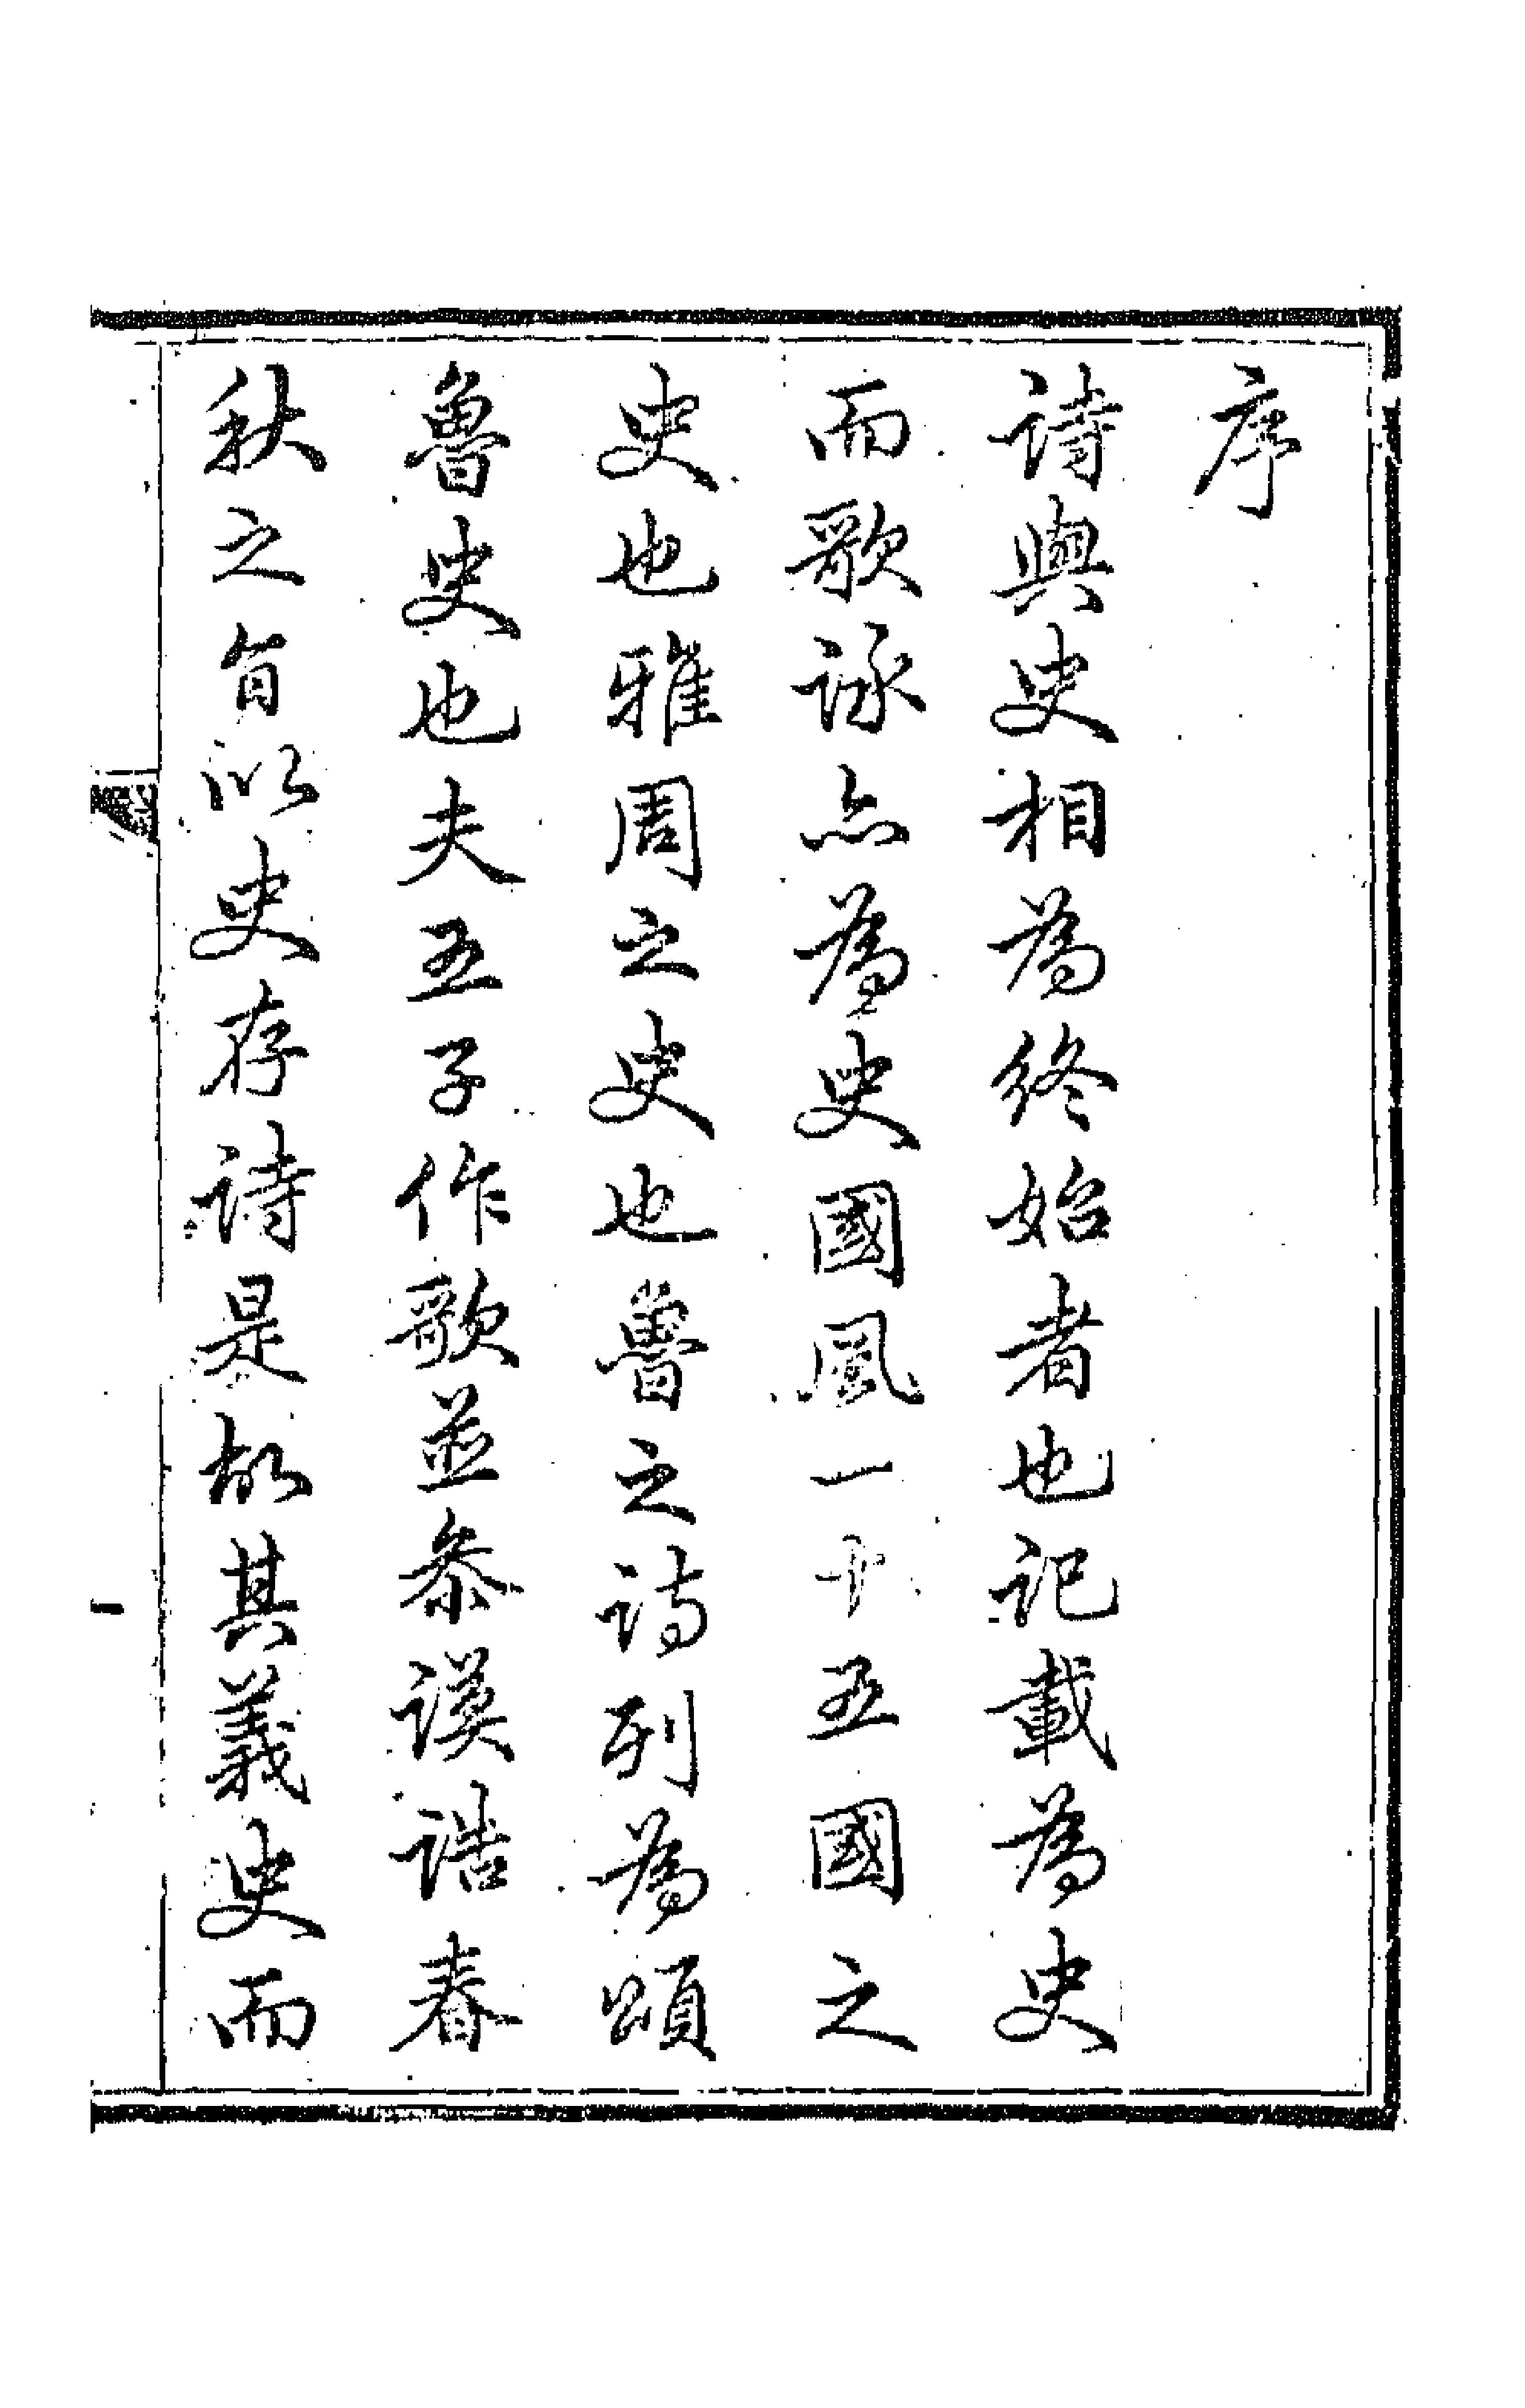 序
詩與史相為終始者也記載為史
而歌詠亦為史國風一十五國之
史也雅周之史也魯之詩列為頌
魯史也夫五子作歌並叅謨誥春
秋之旨以史存詩是故其義史而